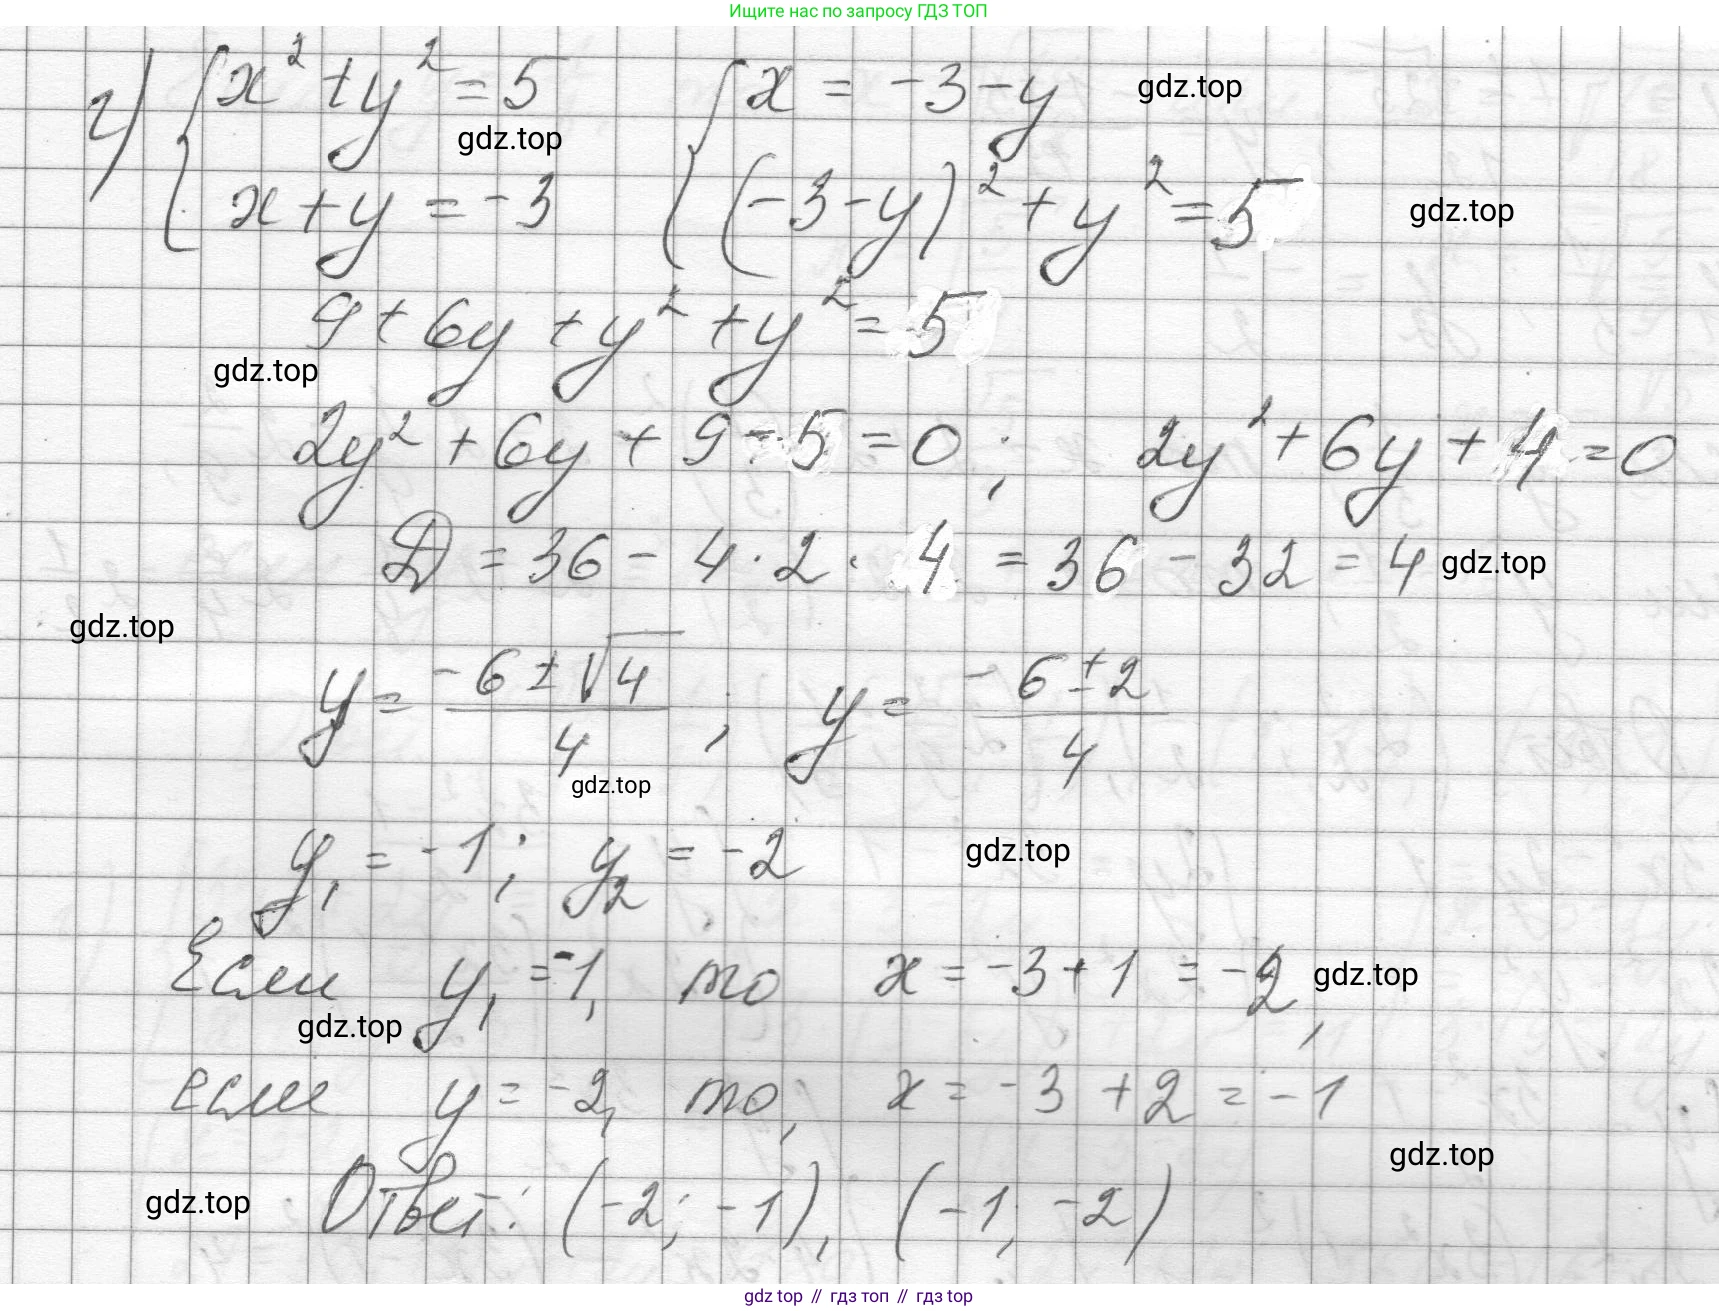 Ищите нас по запросу ГДЗ ТОП
г) { x² + y² = 5 { x = -3 - y gdz.top
gdz.top
x + y = -3 (-3 - y)² + y² = 5 gdz.top
9 + 6y + y² + y² = 5
gdz.top
2y² + 6y + 9 - 5 = 0 ; 2y² + 6y + 4 = 0
D = 36 - 4 · 2 · 4 = 36 - 32 = 4 gdz.top
gdz.top
y = (-6 ± √4)/4 ; y = (-6 ± 2)/4
gdz.top
y₁ = -1 ; y₂ = -2 gdz.top
Если y₁ = -1, то x = -3 + 1 = -2, gdz.top
gdz.top
если y = -2, то, x = -3 + 2 = -1
gdz.top
gdz.top Ответ: (-2; -1), (-1; -2)
gdz top // гдз топ // гдз top